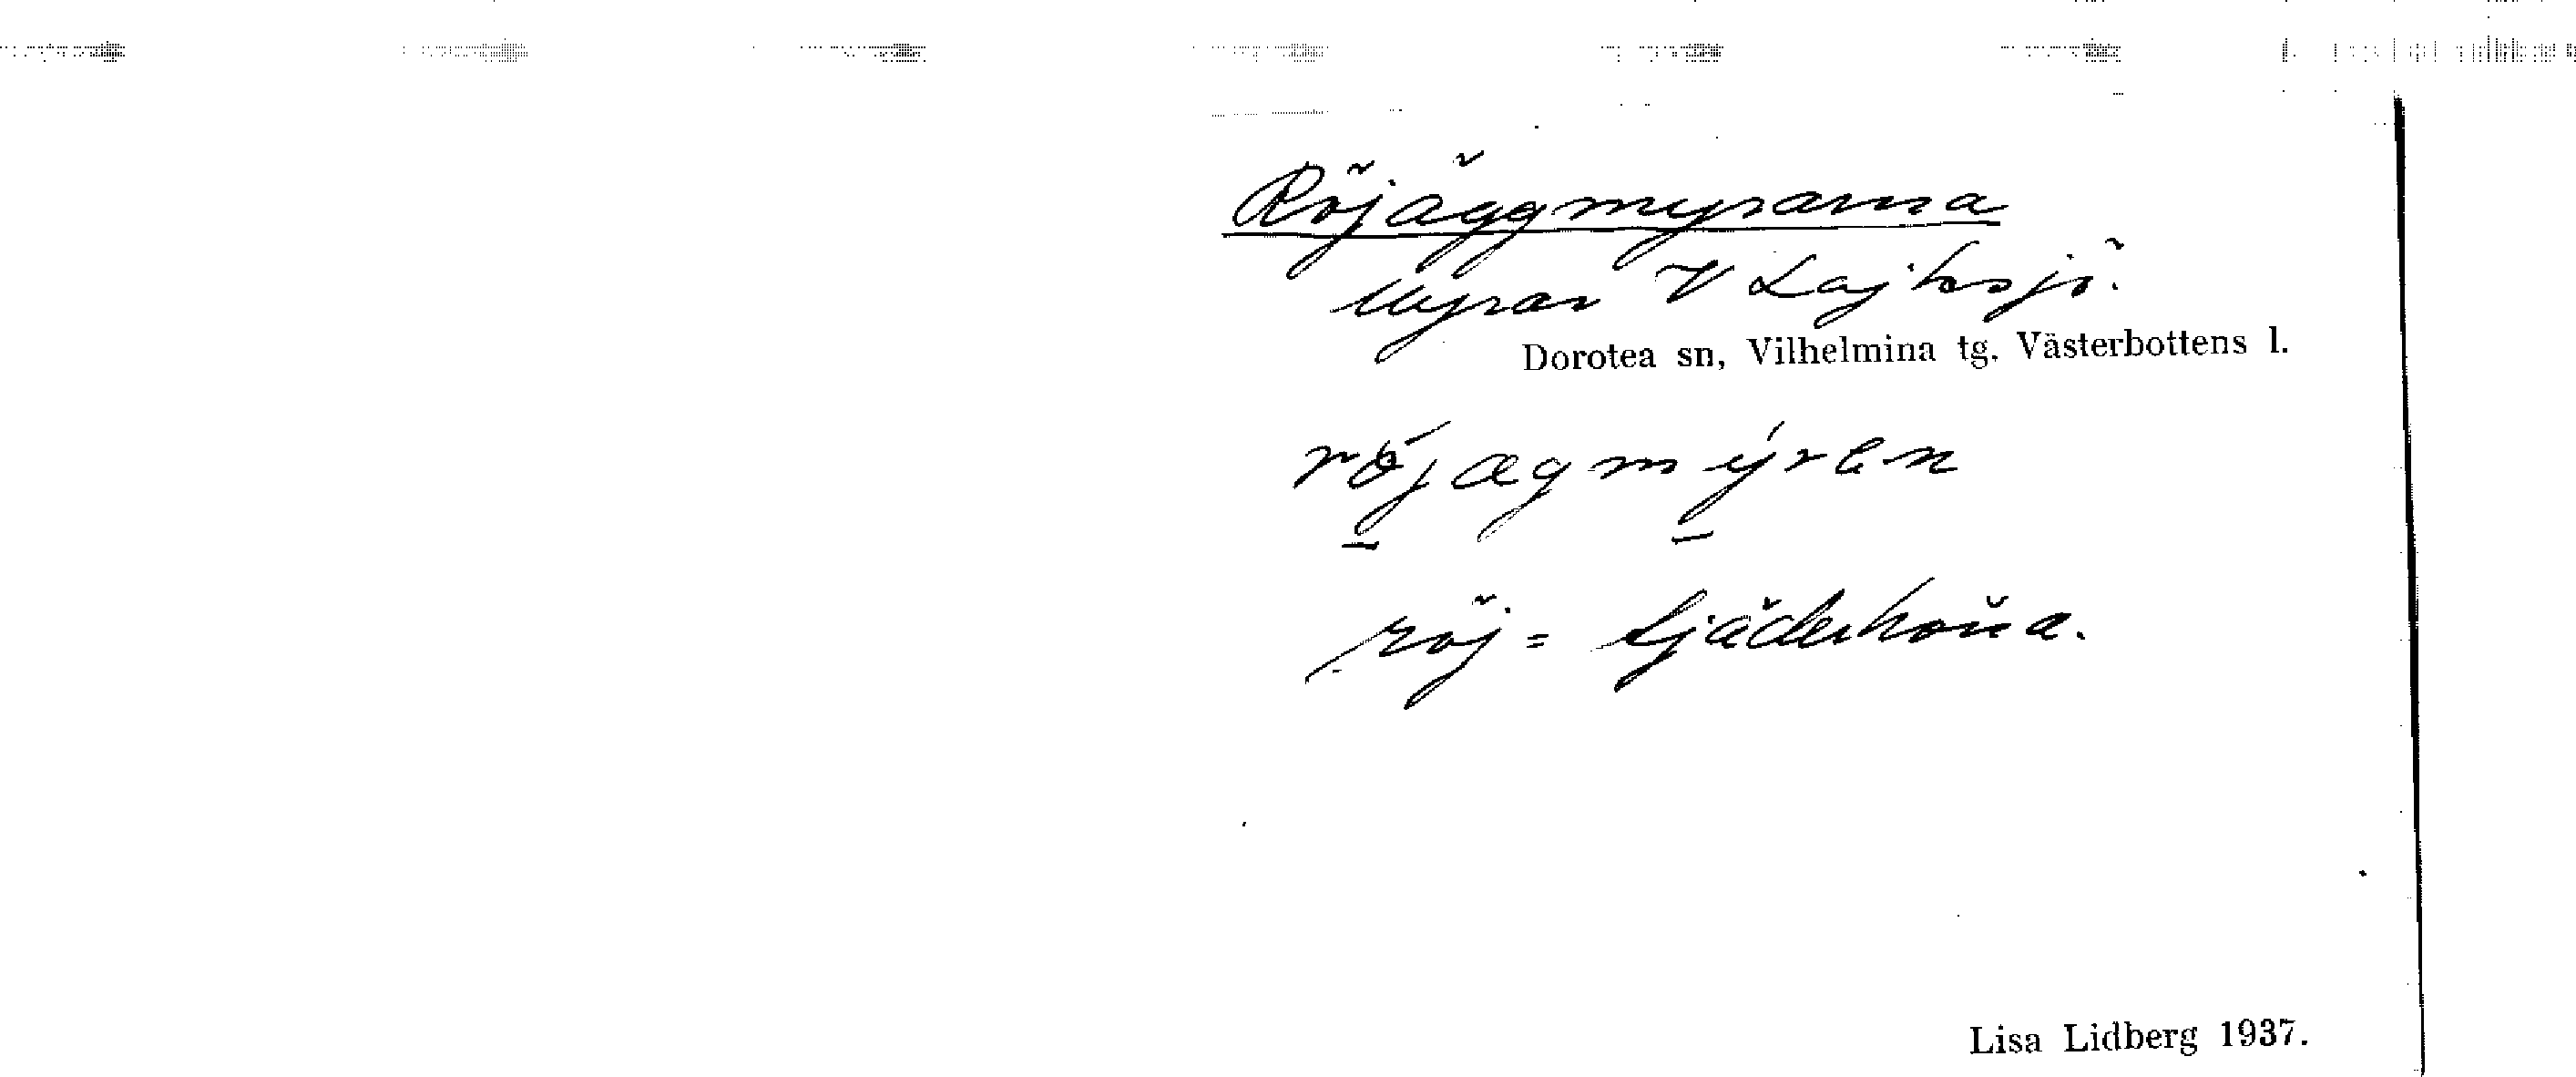 Röjäggmyrarna
Myrar V Lajksjö.
Dorotea sn, Vilhelmina tg. Västerbottens l.
röjægmýren
röj = tjäderhona.
Lisa Lidberg 1937.